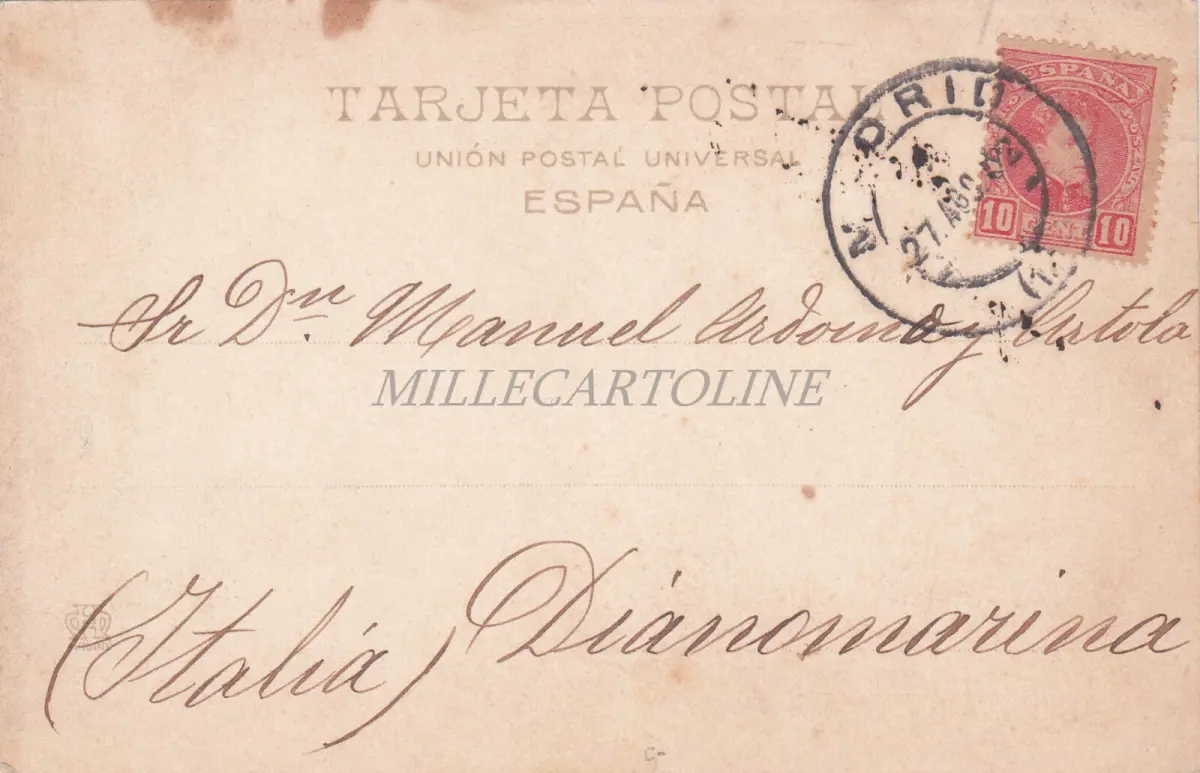 TARJETA POSTAL
UNIÓN POSTAL UNIVERSAL
ESPAÑA
ESPAÑA
10 CENT. 10
MADRID
27 AGO
Sr Dn Manuel Ardoino y Artola
MILLECARTOLINE
(Italiá) Diánomarina